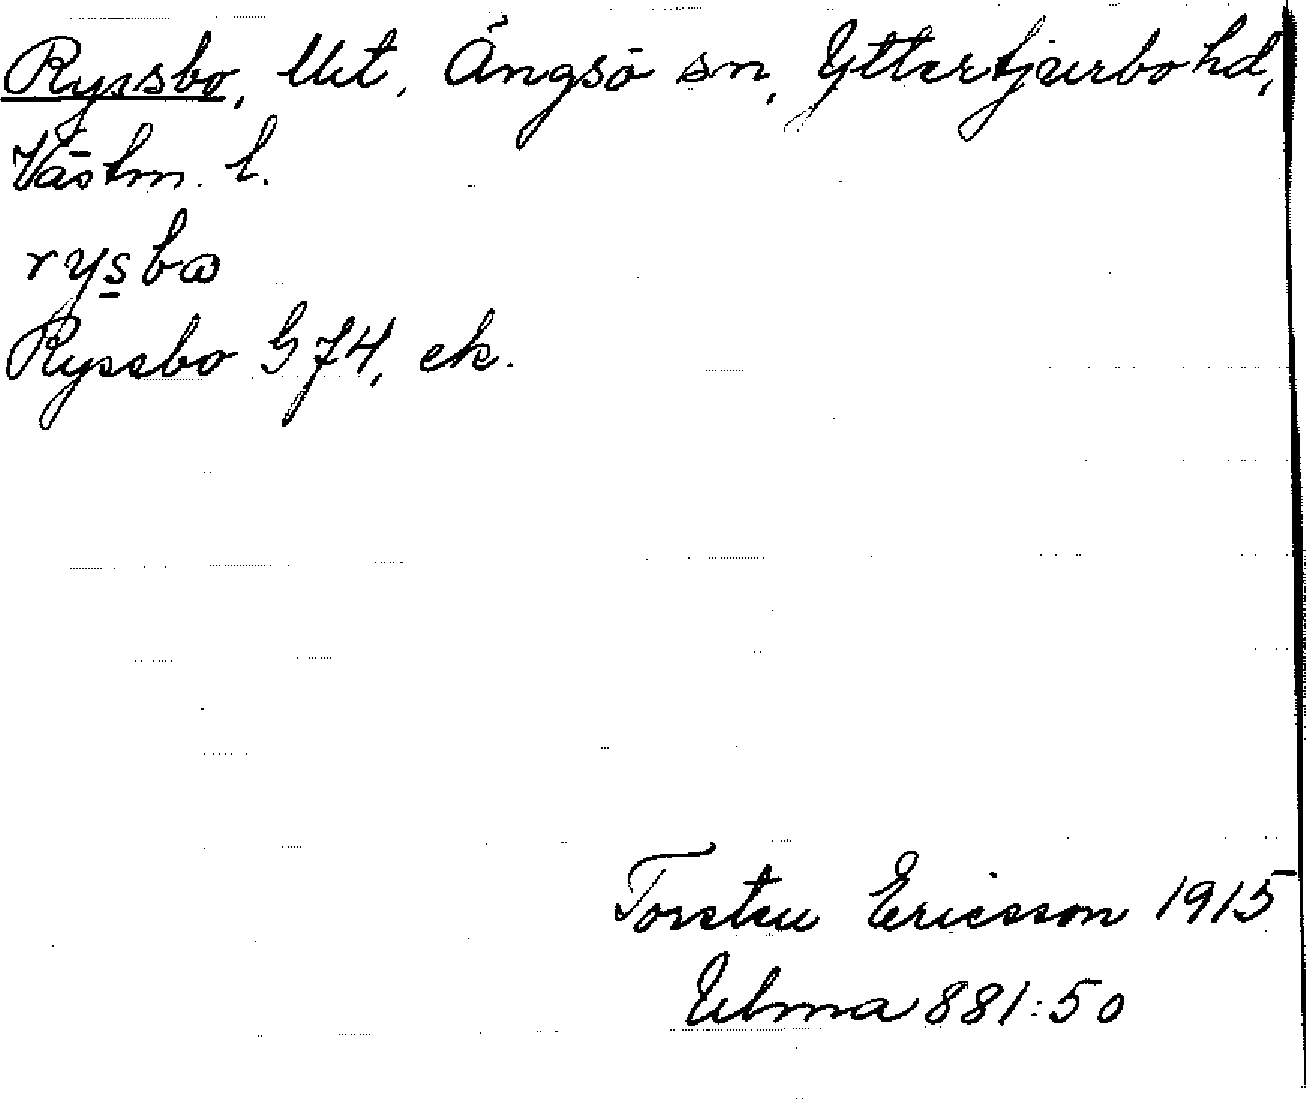 Ryssbo, Utt, Ängsö sn, Yttertjurbo hd,
Västm. l.
rysbω
Ryssbo G 74, ek.
Torsten Ericsson 1915
Ulma 881:50